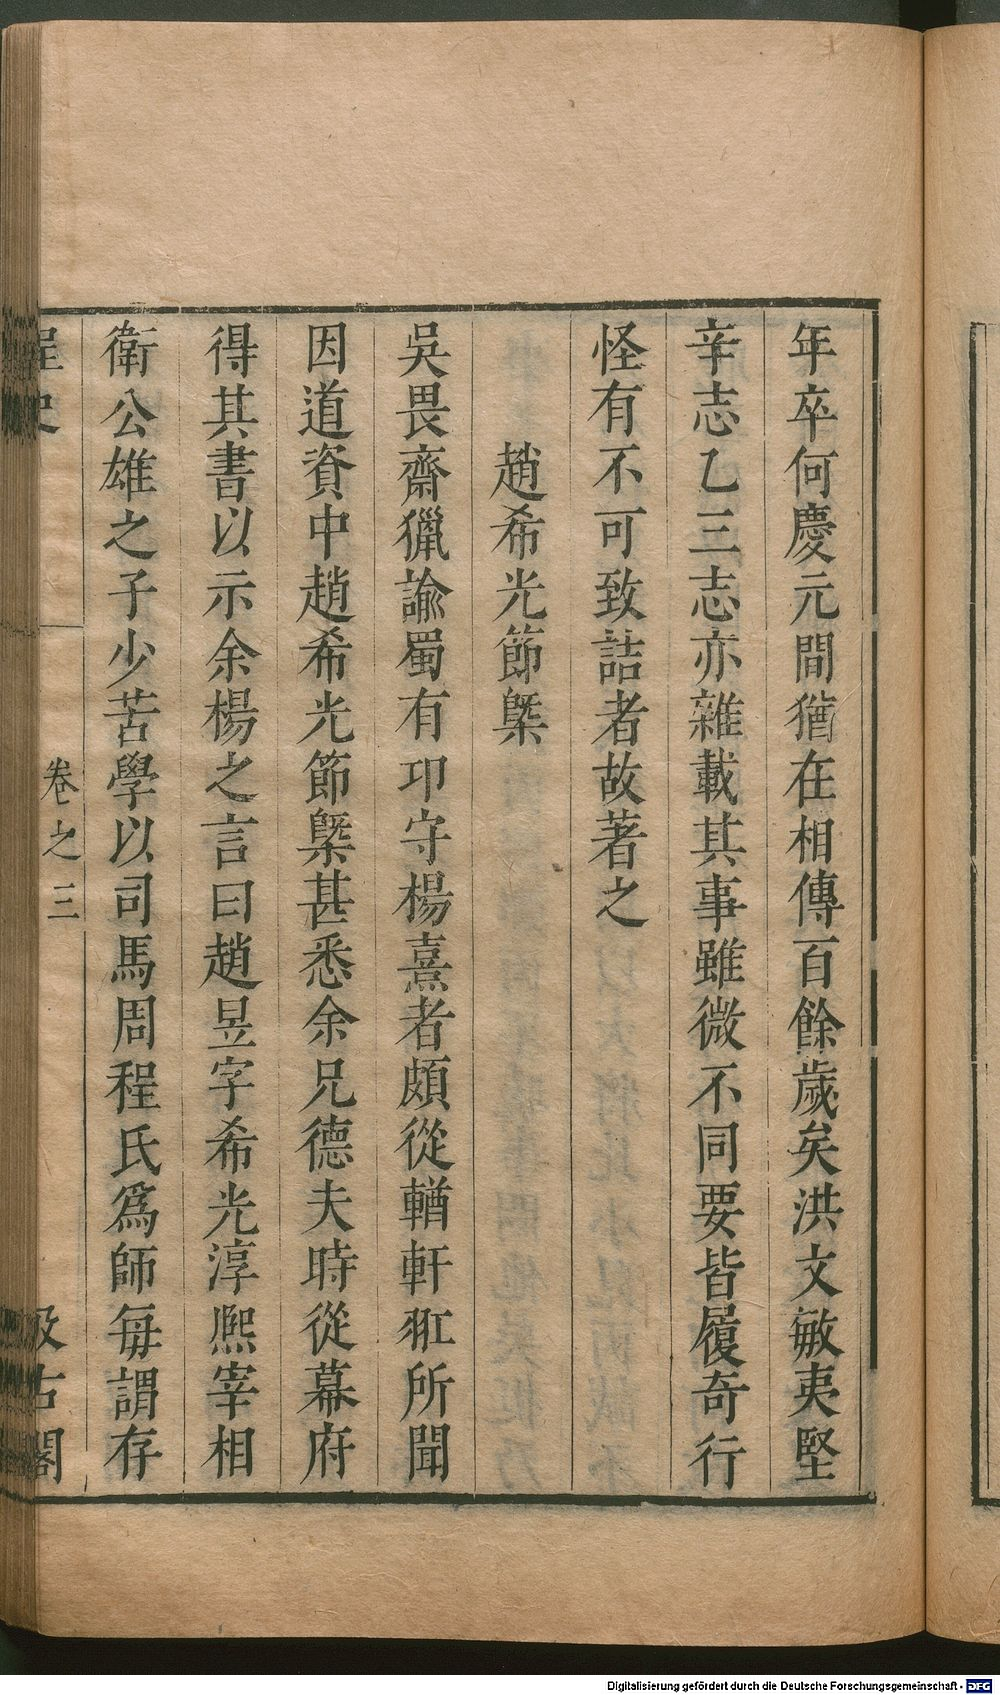 年卒何慶元間猶在相傳百餘歲矣洪文敏夷堅
辛志乙三志亦雜載其事雖微不同要皆履奇行
怪有不可致詰者故著之
趙希光節槩
吳畏齋獵諭蜀有卭守楊熹者頗從輶軒𤣥所聞
因道資中趙希光節槩甚悉余兄德夫時從幕府
得其書以示余楊之言曰趙昱字希光淳熙宰相
衛公雄之子少苦學以司馬周程氏爲師每謂存
桯史
卷之三
汲古閣
Digitalisierung gefördert durch die Deutsche Forschungsgemeinschaft - DFG